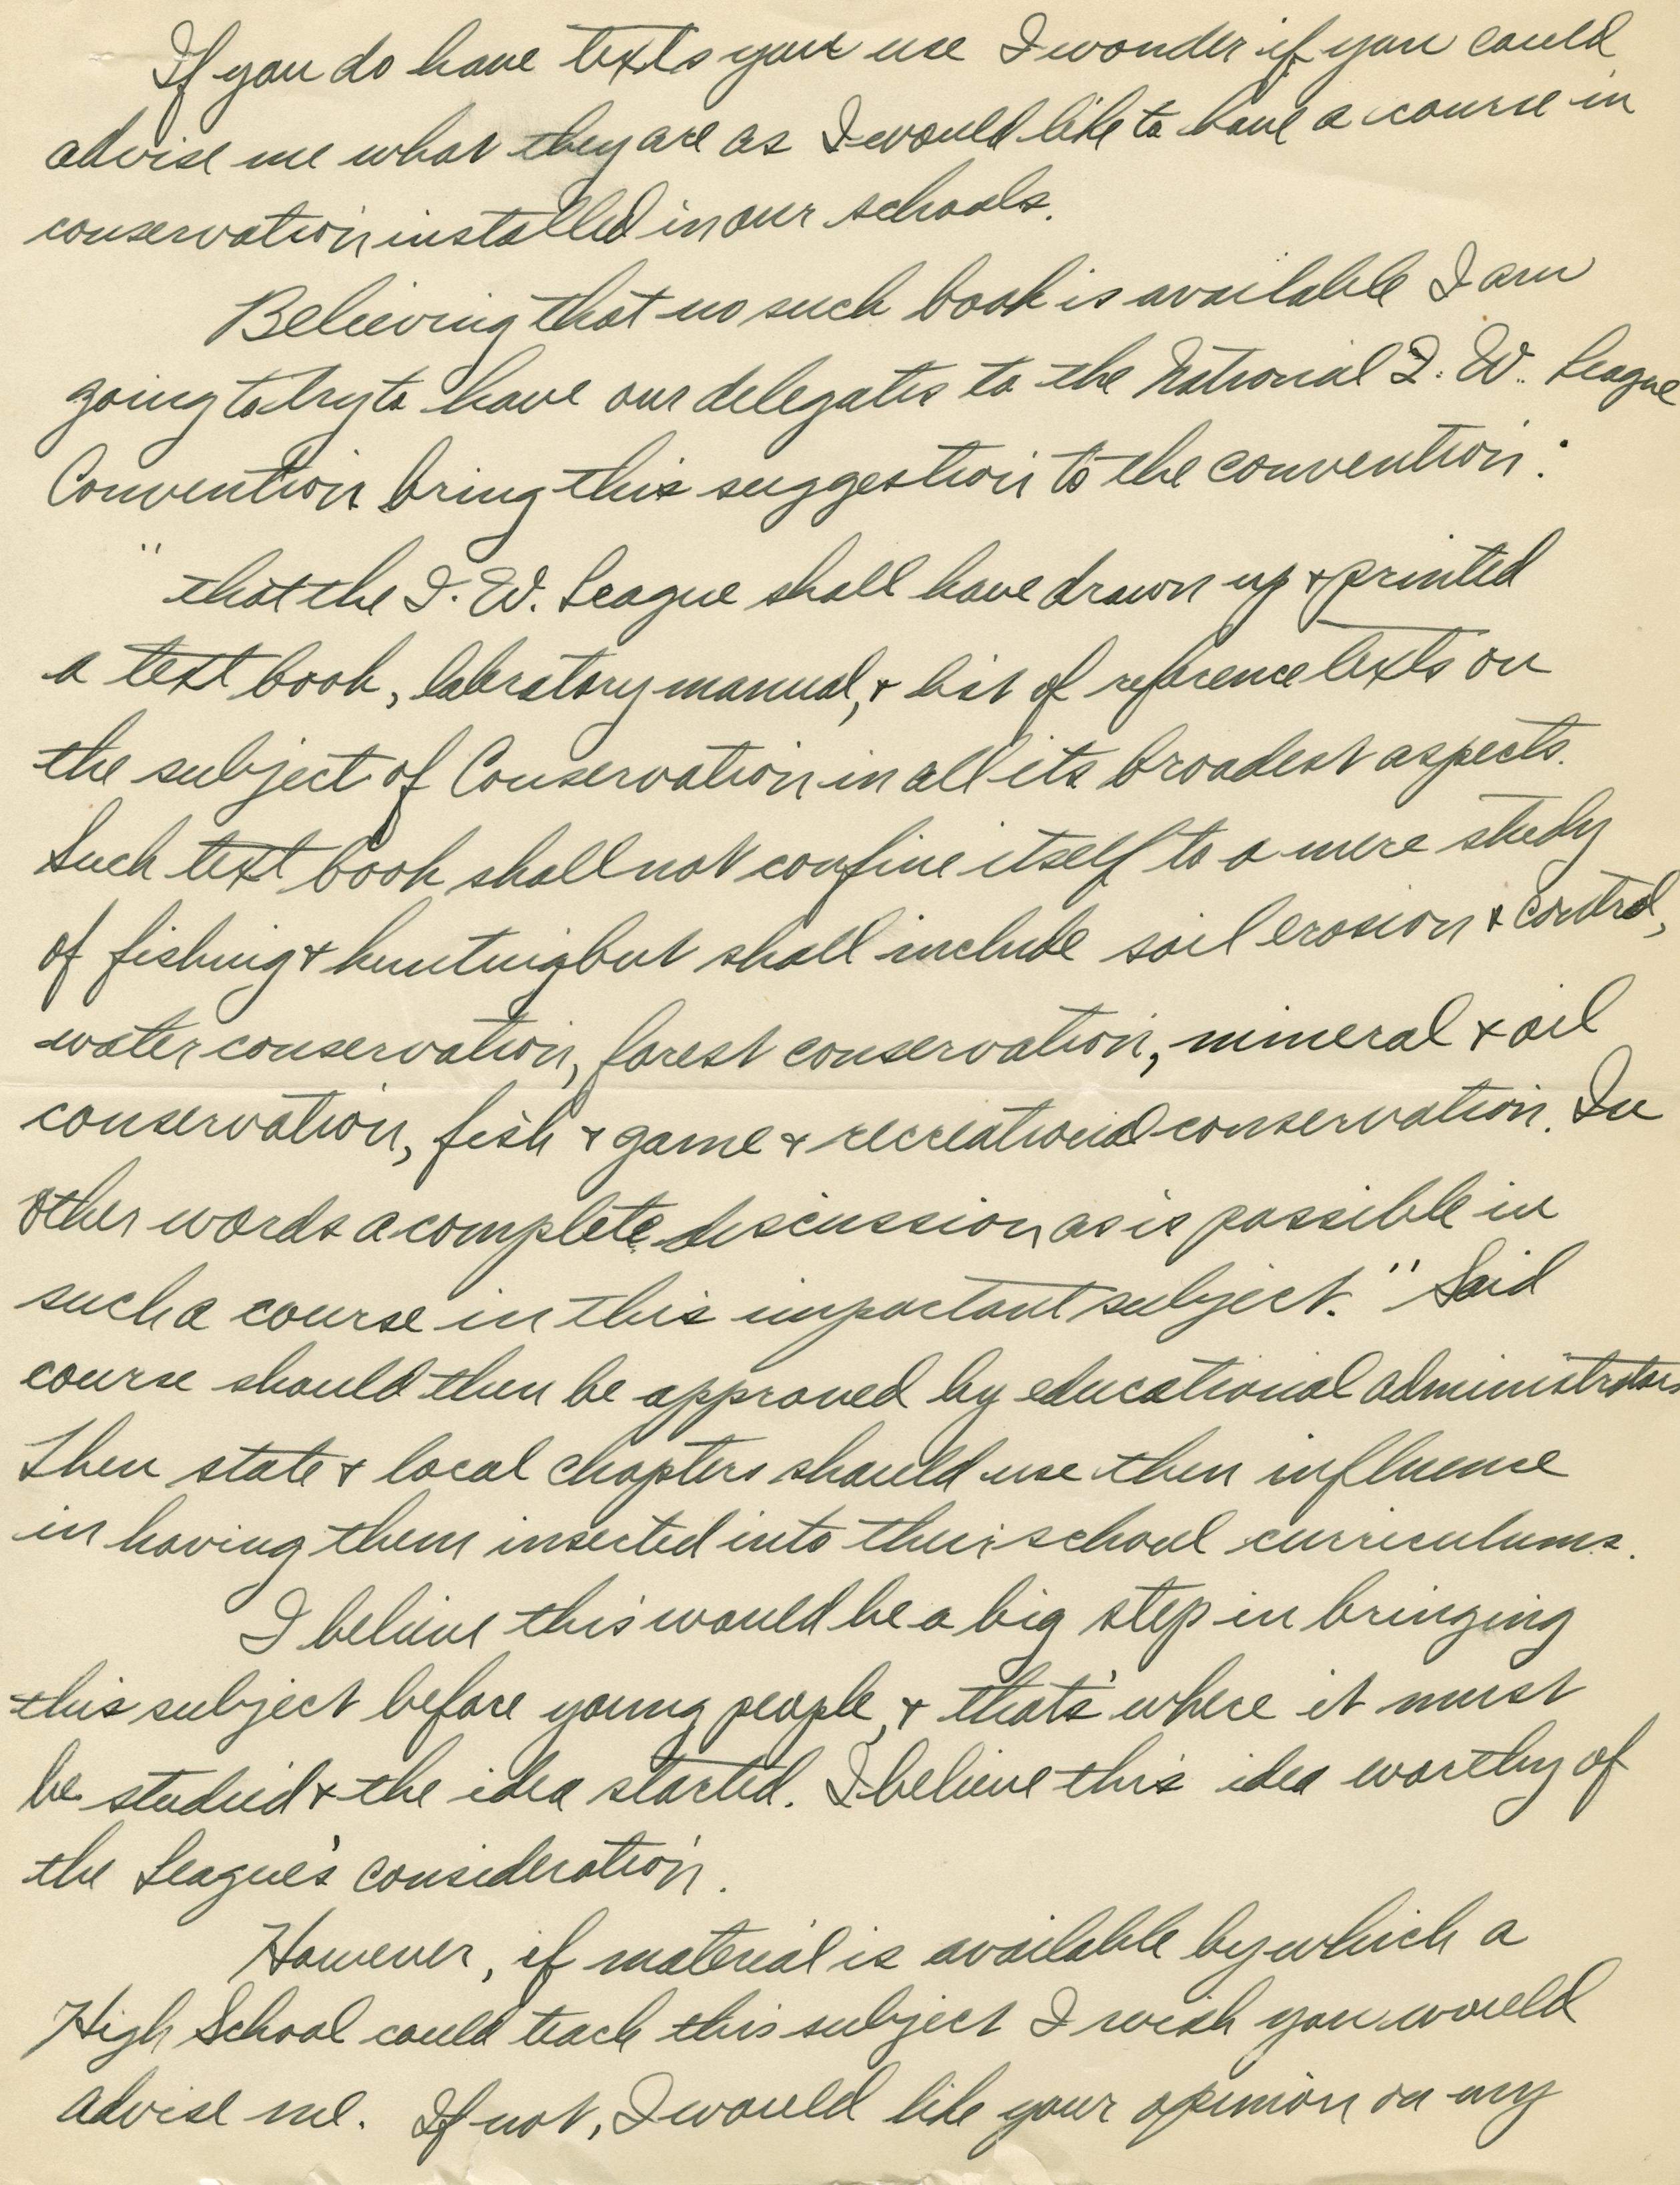 If you do have texts your use I wonder if you could
advise me what they are as I would like to have a course in
conservation installed in our schools.
Believing that no such book is available I am
going to try to have our delegates to the National I. W. League
Convention bring this suggestion to the convention:
" that the I. W. League shall have drawn up & printed
a text book, labratory manual, & list of reference texts on
the subject of Conservation in all its broadest aspects.
Such text book shall not confine itself to a mere study
of fishing & hunting but shall include soil erosion & control,
water conservation, forest conservation, mineral & oil
conservation, fish & game & recreational conservation. In
other words a complete discussion as is possible in
such a course in this important subject." Said
course should then be approved by educational administrators
Then state & local chapters should use then influence
in having them inserted into their school curriculums.
I believe this would be a big step in bringing
this subject before young people, & that's where it must
be studied & the idea started. I believe this idea worthy of
the League's consideration.
However, if material is available by which a
High School could teach this subject I wish you would
advise me. If not, I would like your opinion on my